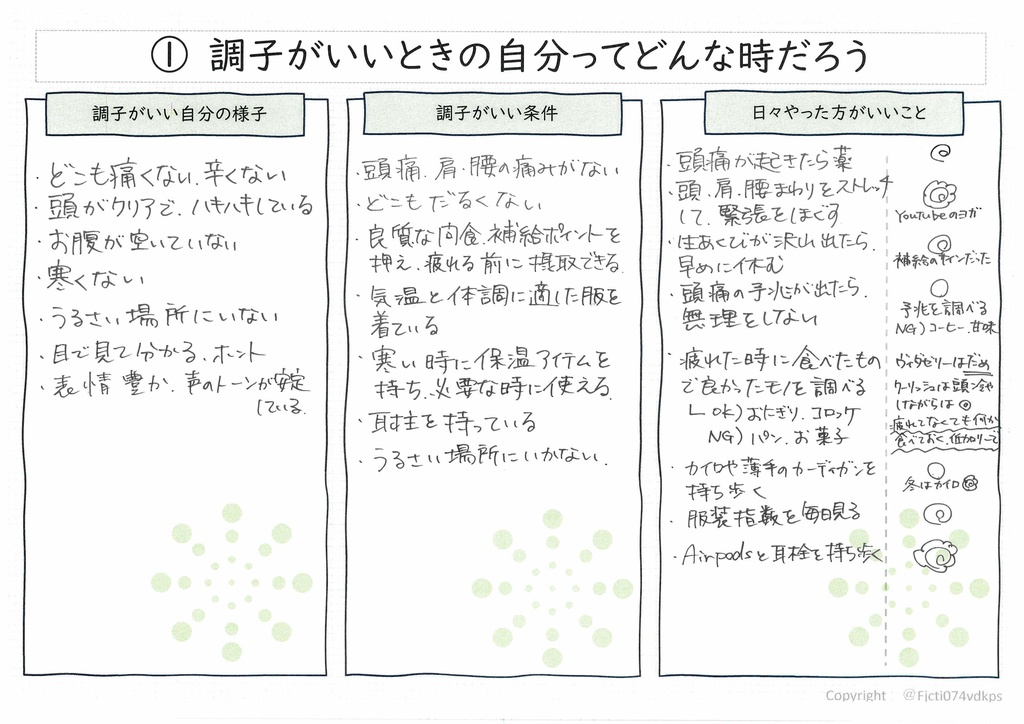 ① 調子がいいときの自分ってどんな時だろう
調子がいい自分の様子
・どこも痛くない、辛くない
・頭がクリアで、ハキハキしている
・お腹が空いていない
・寒くない
・うるさい場所にいない
・目で見て分かる、ホント
・表情豊か、声のトーンが安定
している。
調子がいい条件
・頭痛、肩・腰の痛みがない
・どこもだるくない
・良質な間食、補給ポイントを
押え、疲れる前に摂取できる
・気温と体調に適した服を
着ている
・寒い時に保温アイテムを
持ち、必要な時に使える
・耳栓を持っている
・うるさい場所にいかない。
日々やった方がいいこと
・頭痛が起きたら薬
・頭、肩・腰まわりをストレッチ
して、緊張をほぐす
YouTubeのヨガ
・生あくびが沢山出たら、
早めに休む
補給のサインだった
・頭痛の予兆が出たら、
無理をしない
予兆を調べる
NG)コーヒー、甘味
・疲れた時に食べたもの
で良かったモノを調べる
∟OK)おにぎり、コロッケ
NG)パン、お菓子
ゼリーはだめ
クーリッシュは頭冷や
しながらは◎
疲れてなくても何か
食べておく、低カロリーで
・カイロや薄手のカーディガンを
持ち歩く
○
冬はカイロ◎
・服装指数を毎日見る
・Airpodsと耳栓を持ち歩く
Copyright @Fjcti074vdkps